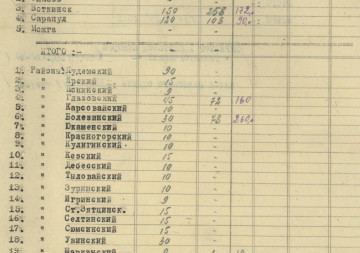 3. Воткинск 150 258 172,0
4. Сарапул 120 108 90,0
5. Можга - - -
ИТОГО :-
1. Районы: Кудемский 90 -
2. " Ярский 15 -
3. " 9 -
4. " Глазовский 45 72 160
5. " Карсовайский 10 -
6. " Болезинский 30 78 260,0
7. " Юкаменский 10 -
8. " Красногорский 10 -
9. " Кулигинский 10 -
10. " Кезский 15 -
11. " Дебесский 10 -
12. " Тыловайский 10 -
13. " Зуринский 10 -
14. " Игринский 9 -
15. " Ст.Зятцинск. 15 -
16. " Селтинский 15 -
17. " Сюмсинский 15 -
18. " Увинский 30 -